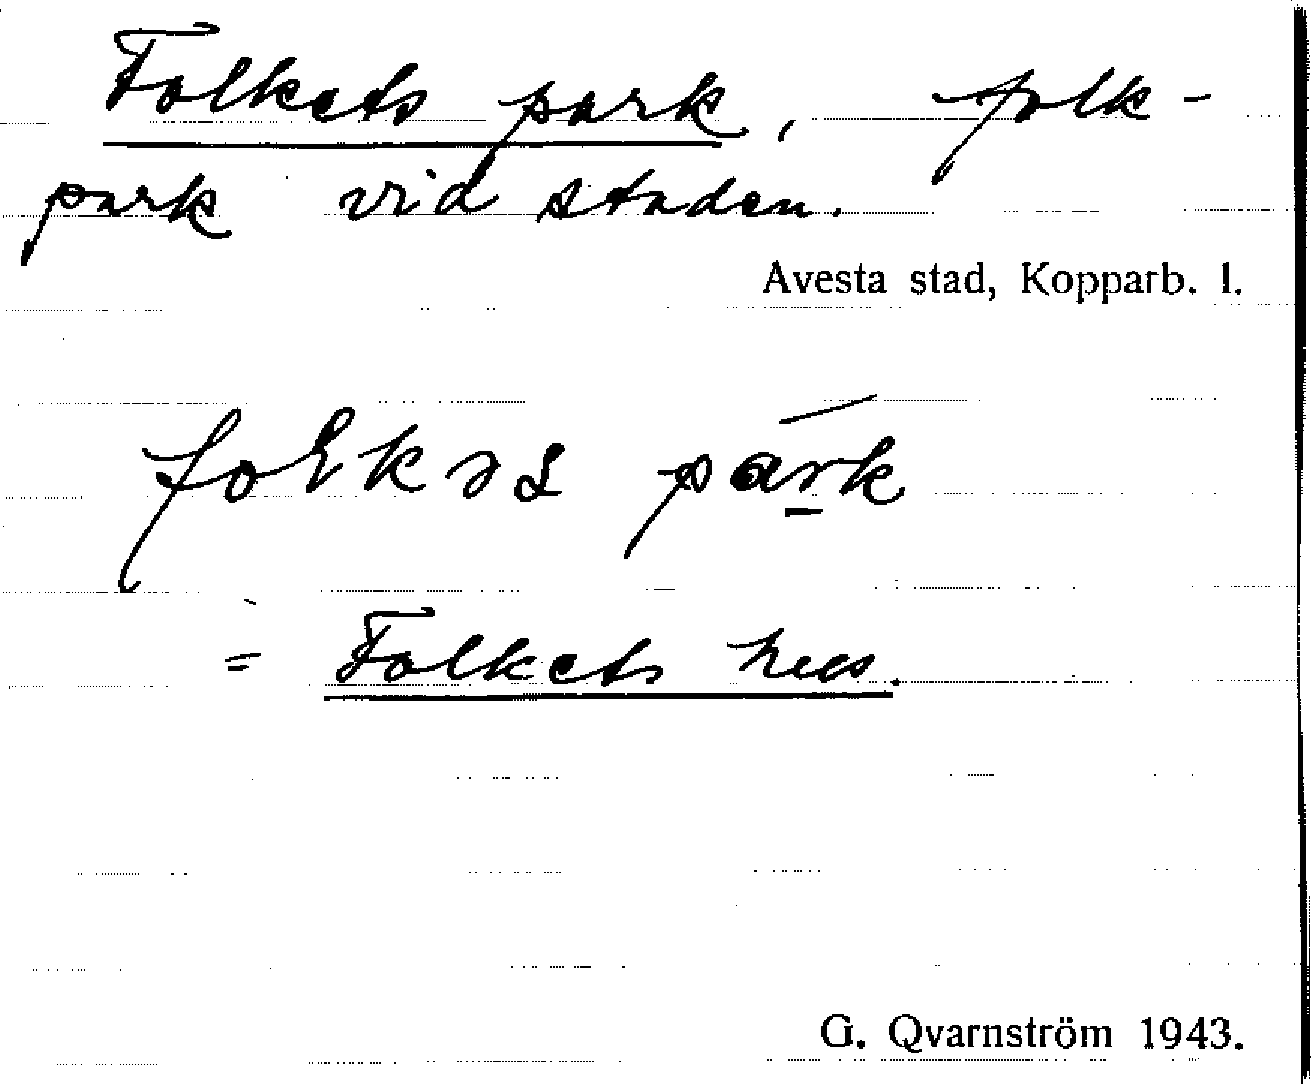 Folkets park, folk-
park vid staden.
Avesta stad, Kopparb. l.
folkəs park
= Folkets hus.
G. Qvarnström 1943.